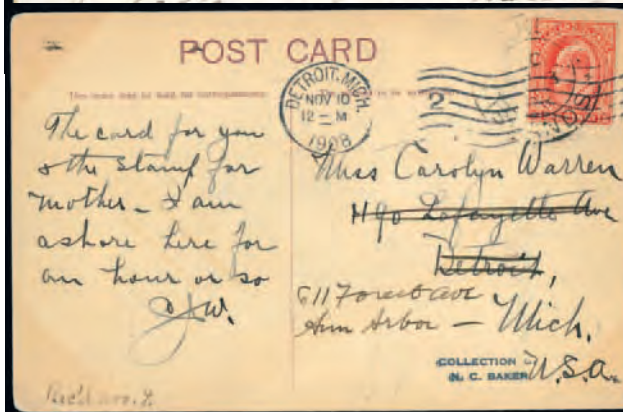 POST CARD
DETROIT, MICH.
NOV 10
12 - M
1908
2
The card for you
& the stamp for
mother - I am
ashore here for
an hour or so
Miss Carolyn Warren
Lafayette Ave
Detroit,
611 Forest ave
Ann Arbor - Mich.
U.S.A.
COLLECTION
N. C. BAKER